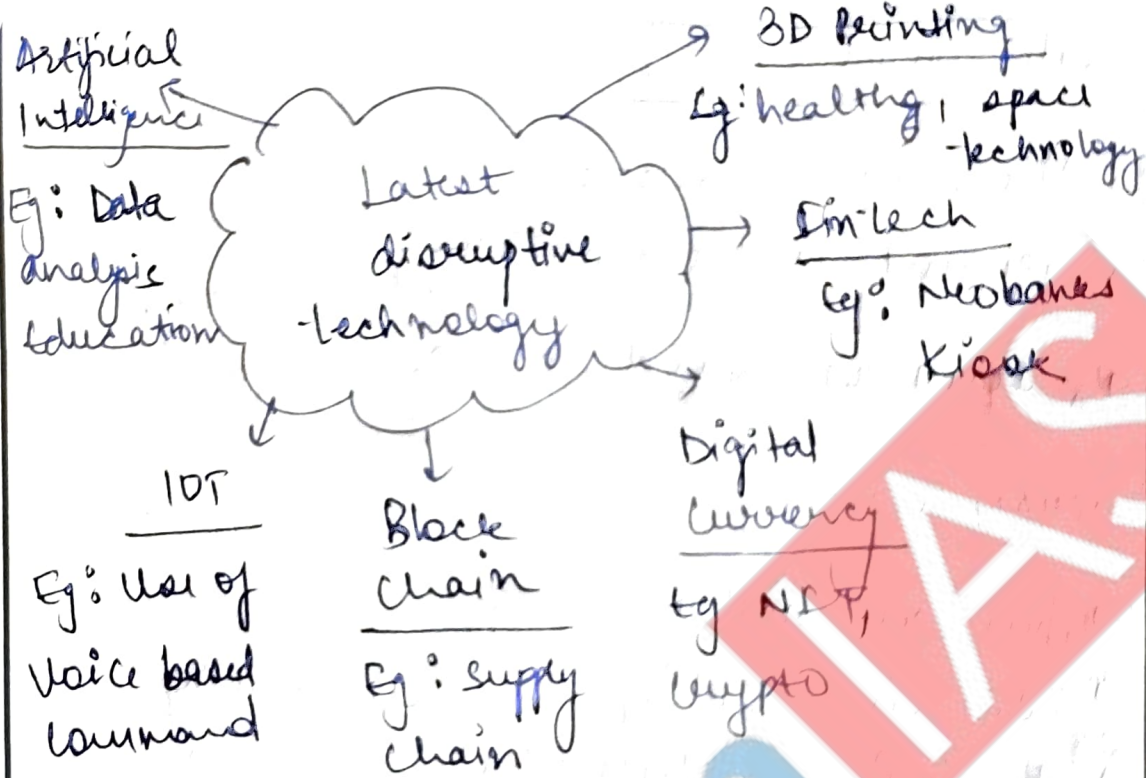 Latest
disruptive
technology
Artificial
Intelligence
Eg: Data
analysis
Education
3D Printing
Eg: healthg, space
technology
Fin-tech
Eg: Neobanks
Kiosk
Digital
Currency
Eg NFT,
Crypto
Block
chain
Eg: Supply
chain
IOT
Eg: Use of
Voice based
Command
IAS